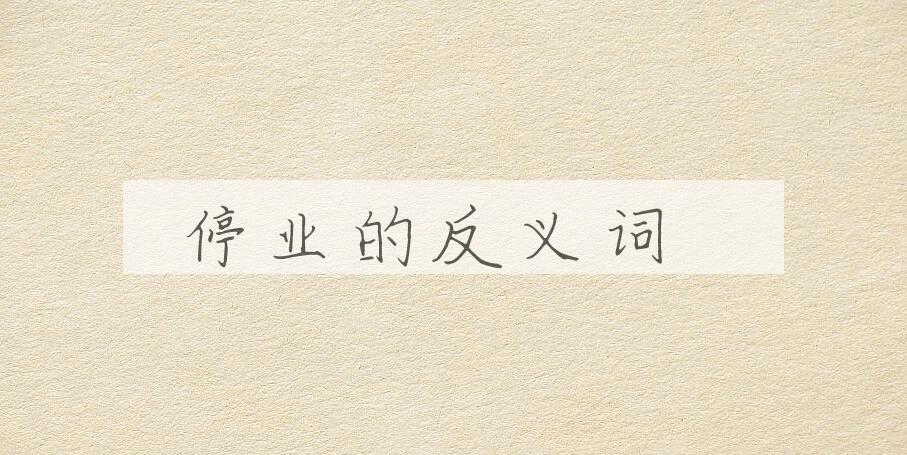 停业的反义词